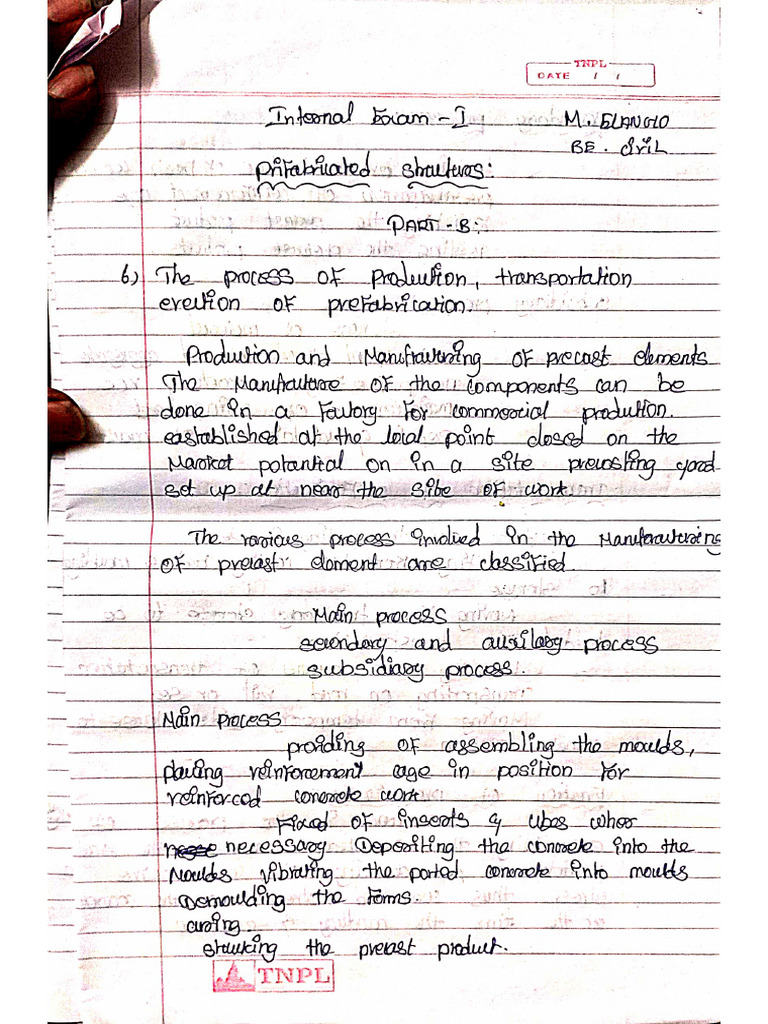 TNPL
DATE / /
Internal Exam - I M. ELANGO
BE. Civil
Prifabricated Structures:
PART - B:
6) The process of production, transportation
erection of prefabrication.
Production and Manufacturing of precast elements
The Manufacture of the components can be
done in a factory for commercial prodution.
eastablished at the local point closed on the
Market potantial on in a site precasting yard
set up at near the site of work.
The various process involved in the Manufacturing
of precast element are classified.
Main process
secondary and auxilary process
subsidiary process.
Main process
proiding of assembling the moulds,
placing reinforcement cage in position for
reinforced concrete work
Fixed of inserts & tubes wher
necessary Depositing the concrete into the
Moulds vibrating the ported concrete into moulds
Demoulding the forms.
curing
stacking the precast product.
TNPL